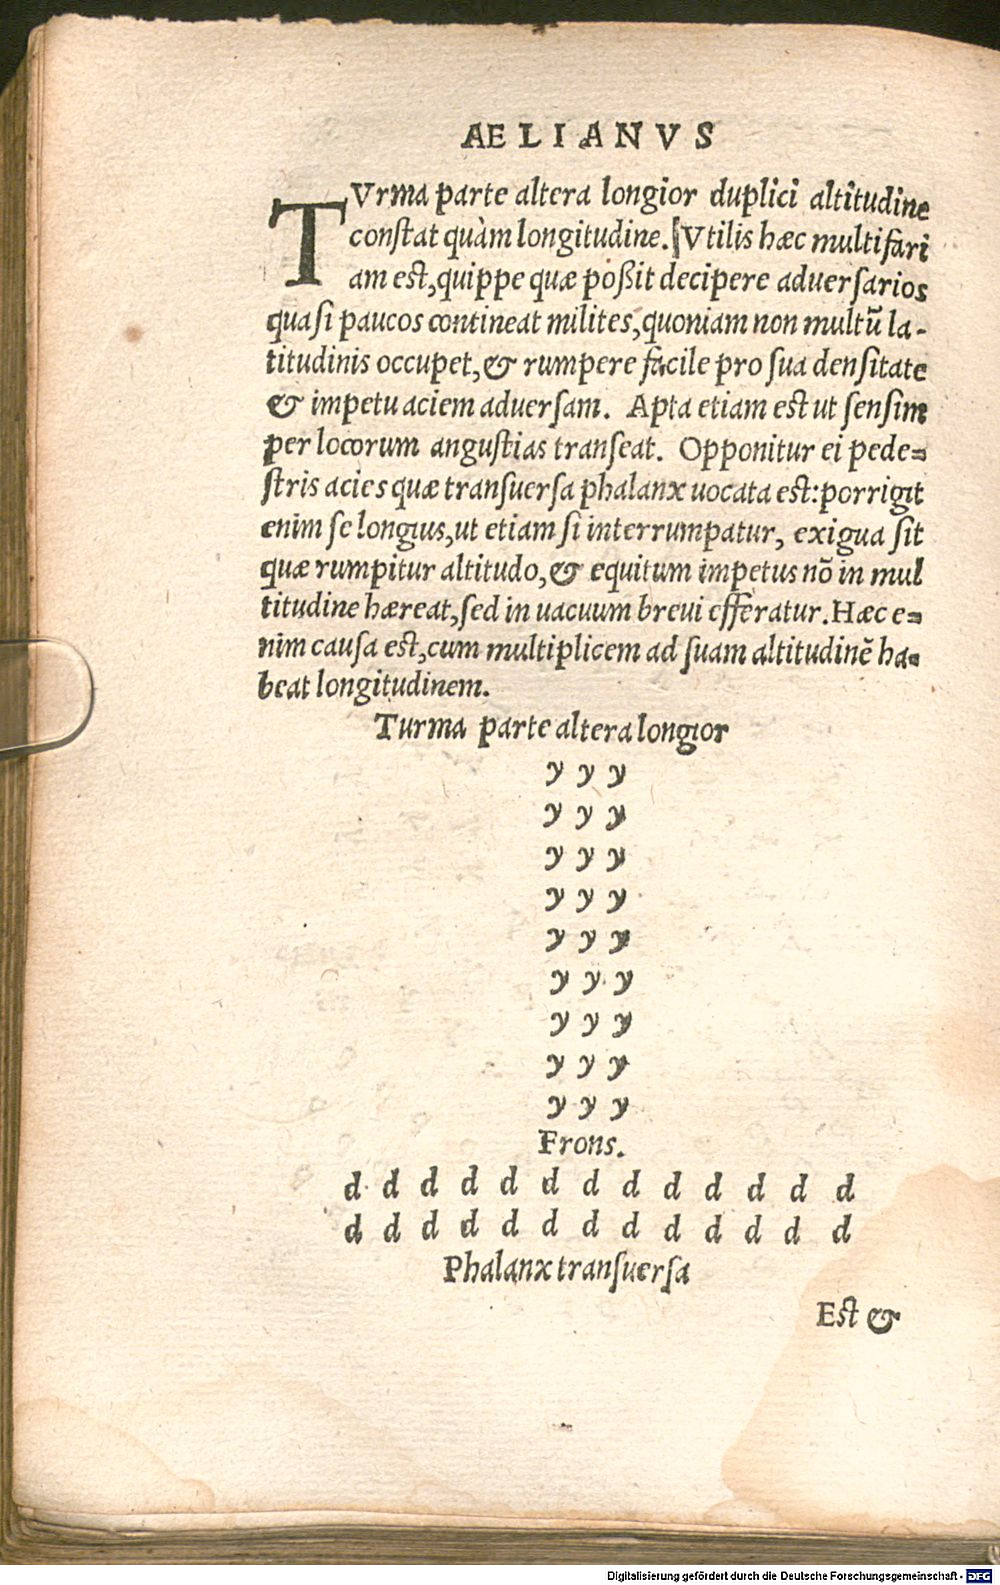 AELIANVS
TVrma parte altera longior duplici altitudine
constat quàm longitudine. Vtilis hæc multifari
am est, quippe quæ poßit decipere aduersarios
quasi paucos contineat milites, quoniam non multũ la-
titudinis occupet, & rumpere facile pro sua densitate
& impetu aciem aduersam. Apta etiam est ut sensim
per locorum angustias transeat. Opponitur ei pede=
stris acies quæ transuersa phalanx uocata est: porrigit
enim se longius, ut etiam si interrumpatur, exigua sit
quæ rumpitur altitudo, & equitum impetus nõ in mul
titudine hæreat, sed in uacuum breui efferatur. Hæc e=
nim causa est, cum multiplicem ad suam altitudinẽ ha=
beat longitudinem.
Turma parte altera longior
y y y
y y y
y y y
y y y
y y y
y y y
y y y
y y y
y y y
Frons.
d d d d d d d d d d d d d
d d d d d d d d d d d d d
Phalanx transuersa
Est &
Digitalisierung gefördert durch die Deutsche Forschungsgemeinschaft - DFG